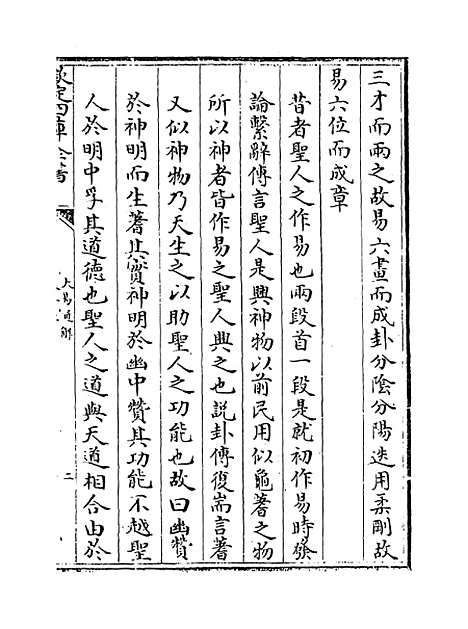 三才而兩之故易六畫而成卦分陰分陽迭用柔剛故
易六位而成章
昔者聖人之作易也兩段首一段是就初作易時發
論繫辭傳言聖人是興神物以前民用似龜蓍之物
所以神者皆作易之聖人興之也説卦傳復耑言蓍
又似神物乃天生之以助聖人之功能也故曰幽贊
於神明而生蓍其實神明於幽中贊其功能不越聖
人於明中孚其道德也聖人之道與天道相合由於
欽定四庫全書
大易通解
二